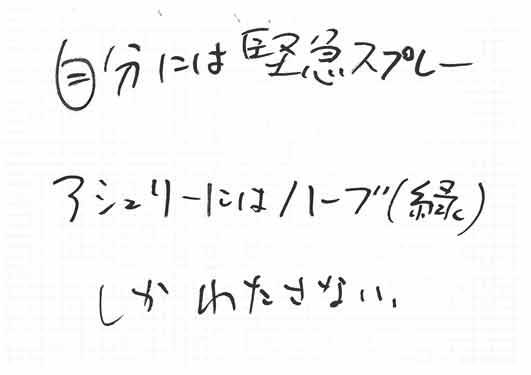 自分には緊急スプレー
アシュリーにはハーブ(緑)
しかわたさない.